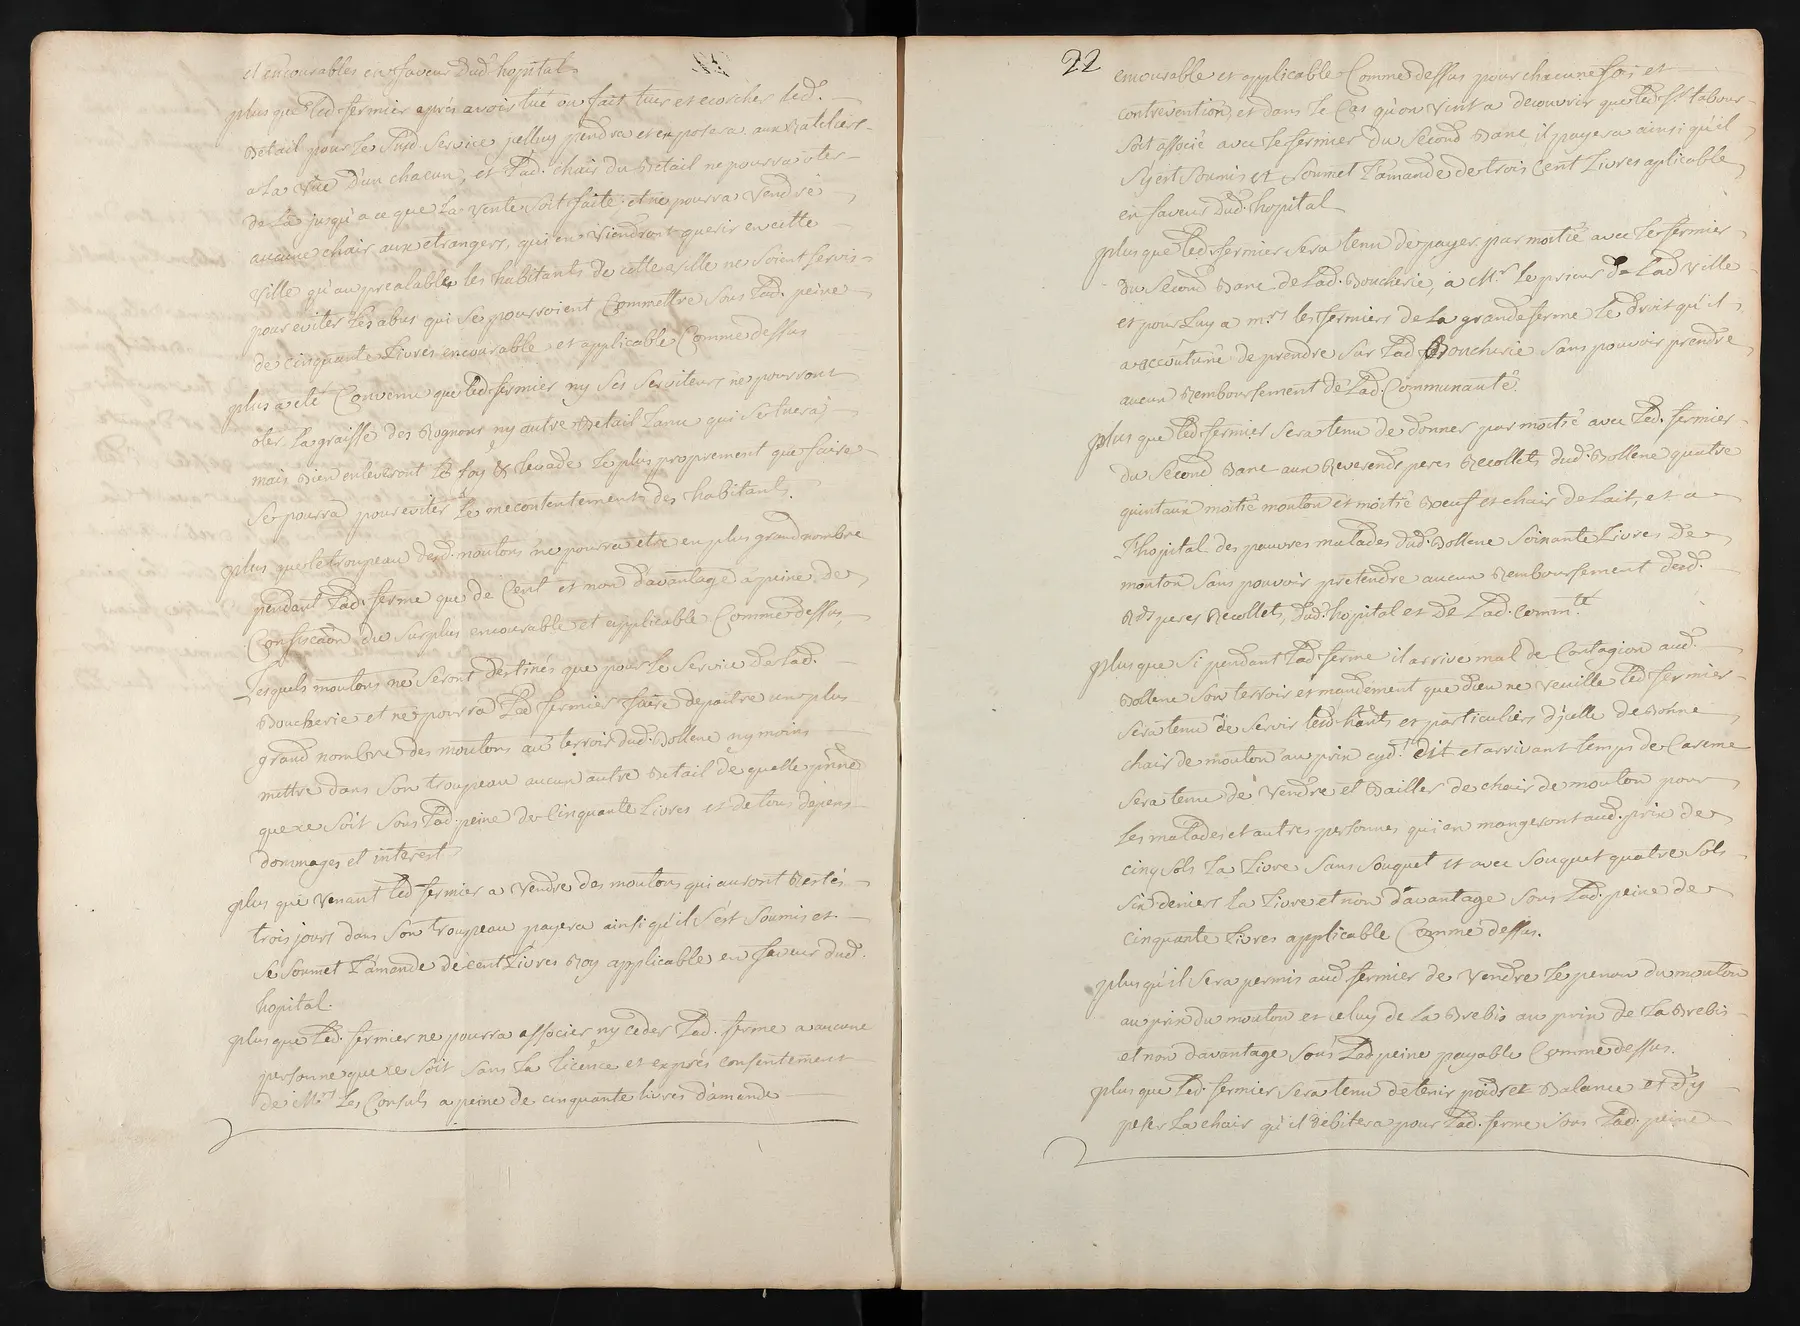 et encourables en faveur dud. hopital
plus que led. fermier aprés avoir tué ou fait tuer et ecorcher led.
Betail pour le susd. service jcelluy pendra et exposera aux Rateliers
a la vüe d'un chacun, et lad. chair du Betail ne pourra oter
de la jusqu'a ce que la vente soit faite et ne pourra vendre
aucune chair aux etrangers, qui en viendront querir en cette
ville qu'au prealable les habitants de cette ville ne soient servis
pour eviter les abus qui se pourroient Commettre sous lad. peine
de cinquante livres encourable et applicable Comme dessus
plus a eté Convenu que led. fermier ny ses serviteurs ne pourront
oter la graisse des Rognons ny autre Betail Lanu qui se tuera,
mais bien enleveront le foy & levade le plus proprement que faire
se pourra pour eviter le mecontentement des habitants.
plus que le troupeau desd. moutons ne pourra etre en plus grand nombre
pendant lad. ferme que de Cent et non davantage a peine de
Confiscaon du surplus encourable et applicable Comme dessus,
Lesquels moutons ne seront destinés que pour le service de lad.
Boucherie et ne pourra led fermier faire depaitre un plus
grand nombre des moutons au terroir dud. Bollene ny moins
mettre dans son troupeau aucun autre Betail de quelle
que ce soit sous lad. peine de Cinquante livres et de tous depens
dommages et interest
plus que venant led fermier a vendre des moutons qui auront Restés
trois jours dans son troupeau payera ainsi qu'il s'est soumis et
se soumet l'amande de cent livres Roy applicable en faveur dud.
hopital.
plus que led. fermier ne pourra associer ny ceder lad. ferme a aucune
personne que ce soit sans la licence et exprés consentement
de Mrs. les Consuls a peine de cinquante livres d'amande
22
encourable et applicable Comme dessus pour chacune fois et
contrevention, et dans le cas qu'on vint a decouvrir que led. sr. labour
soit associé avec le fermier du second Banc, il payera ainsi qu'il
s'y est soumis et soumet l'amande de trois cent livres aplicable
en faveur dud. hopital
plus que led. fermier sera tenu de payer par moitié avec le fermier
du second Banc de lad. Boucherie, a Mr. le prieur de lad ville
et pour luy a mrs. les fermiers de la grande ferme le droit qu'il
a accoutumé de prendre sur lad Boucherie sans pouvoir prendre
aucun Remboursement de lad. Communauté.
plus que led. fermier sera tenu de donner par moitié avec led. fermier
du second Banc aux Reverends peres Recollets dud. Bollene quatre
quintaux moitié mouton et moitié Boeuf et chair de lait, et a
l'hopital des pauvres malades dud. Bollene soixante livres de
mouton, sans pouvoir pretendre aucun Remboursement desd.
Rds peres Recollets, dud. hopital et de lad. commté
plus que si pendant lad. ferme il arrive mal de Contagion aud.
Bollene son terroir et mandement que dieu ne veuille led fermier
sera tenu de servir lesd. hants et particuliers d'jcelle de bonne
chair de mouton au prix cyd.t dit et arrivant temps de Careme
sera tenu de vendre et Bailler de chair de mouton pour
les malades et autres personnes qui en mangeront aud. prix de
cinq sols la livre sans souquet et avec souquet quatre sols
six deniers la livre et non davantage sous lad. peine de
cinquante livres applicable Comme dessus.
plus qu'il sera permis aud. fermier de vendre le penou du mouton
au prix du mouton et celuy de la Brebis au prix de la Brebis
et non davantage sous lad peine payable Comme dessus.
plus que led. fermier sera tenu de tenir poids et Balance et d'y
peser la chair qu'il debitera pour lad. ferme sous lad. peine